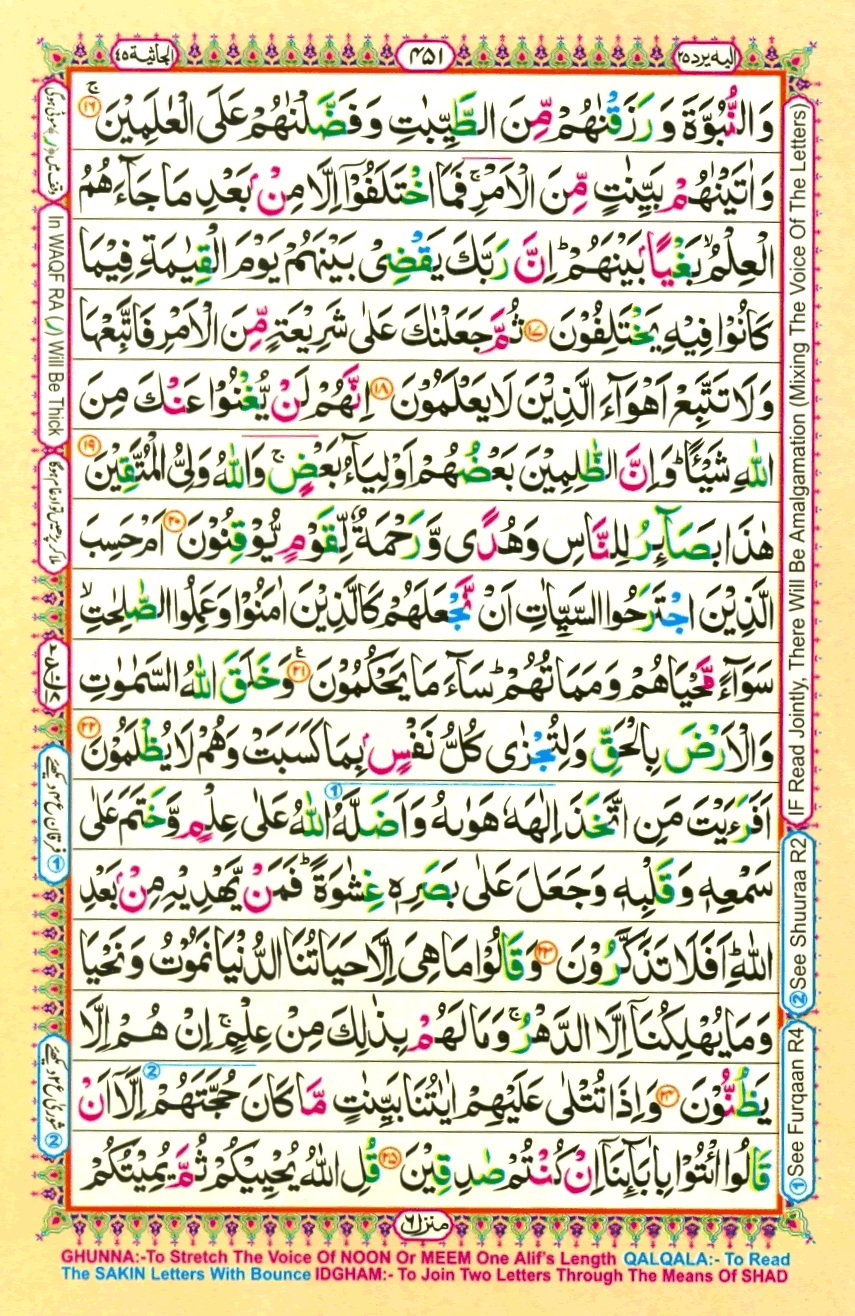 الجاثية ٤٥
٤٥١
اليه يرد ٢٥
وَالنُّبُوَّةَ وَرَزَقْنٰهُمْ مِّنَ الطَّيِّبٰتِ وَفَضَّلْنٰهُمْ عَلَى الْعٰلَمِيْنَ ۚ ﴿١٦﴾
وَاٰتَيْنٰهُمْ بَيِّنٰتٍ مِّنَ الْاَمْرِ ۚ فَمَا اخْتَلَفُوْٓا اِلَّا مِنْۢ بَعْدِ مَا جَآءَهُمُ
الْعِلْمُ ۙ بَغْيًاۢ بَيْنَهُمْ ؕ اِنَّ رَبَّكَ يَقْضِىْ بَيْنَهُمْ يَوْمَ الْقِيٰمَةِ فِيْمَا
كَانُوْا فِيْهِ يَخْتَلِفُوْنَ ﴿١٧﴾ ثُمَّ جَعَلْنٰكَ عَلٰى شَرِيْعَةٍ مِّنَ الْاَمْرِ فَاتَّبِعْهَا
وَلَا تَتَّبِعْ اَهْوَآءَ الَّذِيْنَ لَا يَعْلَمُوْنَ ﴿١٨﴾ اِنَّهُمْ لَنْ يُّغْنُوْا عَنْكَ مِنَ
اللّٰهِ شَيْـًٔا ؕ وَاِنَّ الظّٰلِمِيْنَ بَعْضُهُمْ اَوْلِيَآءُ بَعْضٍ ۚ وَاللّٰهُ وَلِىُّ الْمُتَّقِيْنَ ﴿١٩﴾
هٰذَا بَصَآئِرُ لِلنَّاسِ وَهُدًى وَّرَحْمَةٌ لِّقَوْمٍ يُّوْقِنُوْنَ ﴿٢٠﴾ اَمْ حَسِبَ
الَّذِيْنَ اجْتَرَحُوا السَّيِّاٰتِ اَنْ نَّجْعَلَهُمْ كَالَّذِيْنَ اٰمَنُوْا وَعَمِلُوا الصّٰلِحٰتِ ۙ
سَوَآءً مَّحْيَاهُمْ وَمَمَاتُهُمْ ؕ سَآءَ مَا يَحْكُمُوْنَ ﴿٢١﴾ وَخَلَقَ اللّٰهُ السَّمٰوٰتِ
وَالْاَرْضَ بِالْحَقِّ وَلِتُجْزٰى كُلُّ نَفْسٍۢ بِمَا كَسَبَتْ وَهُمْ لَا يُظْلَمُوْنَ ﴿٢٢﴾
اَفَرَءَيْتَ مَنِ اتَّخَذَ اِلٰهَهٗ هَوٰىهُ وَاَضَلَّهُ اللّٰهُ عَلٰى عِلْمٍ وَّخَتَمَ عَلٰى
سَمْعِهٖ وَقَلْبِهٖ وَجَعَلَ عَلٰى بَصَرِهٖ غِشٰوَةً ؕ فَمَنْ يَّهْدِيْهِ مِنْۢ بَعْدِ
اللّٰهِ ؕ اَفَلَا تَذَكَّرُوْنَ ﴿٢٣﴾ وَقَالُوْا مَا هِىَ اِلَّا حَيَاتُنَا الدُّنْيَا نَمُوْتُ وَنَحْيَا
وَمَا يُهْلِكُنَآ اِلَّا الدَّهْرُ ۚ وَمَا لَهُمْ بِذٰلِكَ مِنْ عِلْمٍ ۚ اِنْ هُمْ اِلَّا
يَظُنُّوْنَ ﴿٢٤﴾ وَاِذَا تُتْلٰى عَلَيْهِمْ اٰيٰتُنَا بَيِّنٰتٍ مَّا كَانَ حُجَّتَهُمْ اِلَّآ اَنْ
قَالُوا ائْتُوْا بِاٰبَآئِنَآ اِنْ كُنْتُمْ صٰدِقِيْنَ ﴿٢٥﴾ قُلِ اللّٰهُ يُحْيِيْكُمْ ثُمَّ يُمِيْتُكُمْ
منزل ٦
In WAQF RA (ر) Will Be Thick
IF Read Jointly, There Will Be Amalgamation (Mixing The Voice Of The Letters)
② See Shuuraa R2
① See Furqaan R4
GHUNNA:-To Stretch The Voice Of NOON Or MEEM One Alif's Length QALQALA:- To Read
The SAKIN Letters With Bounce IDGHAM:- To Join Two Letters Through The Means Of SHAD